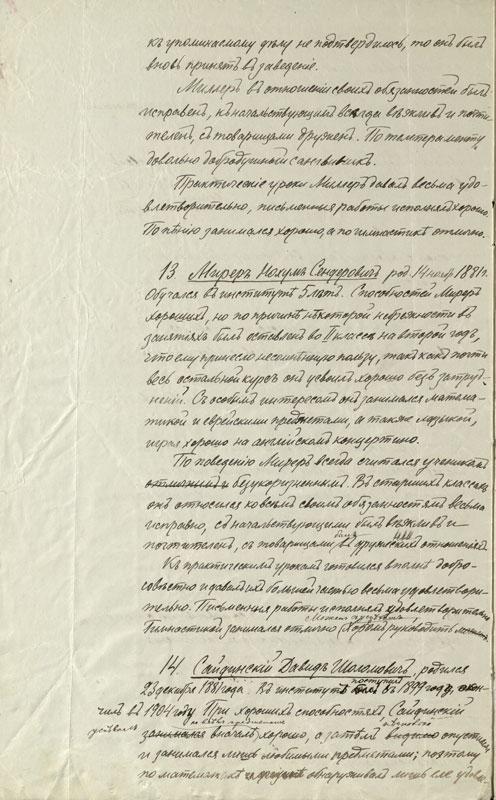 къ упоминаемому дѣлу не подтвердилось, то онъ былъ
вновь принятъ въ заведеніе.
Миллеръ въ отношеніи своихъ обязанностей былъ
исправенъ, къ начальствующимъ всегда вѣжливъ и почти-
теленъ, съ товарищами друженъ. По темпераменту
довольно добродушный сангвиникъ.
Практическіе уроки Миллеръ давалъ весьма удо-
влетворительно, письменныя работы исполнялъ хорошо.
По пѣнію занимался хорошо, а по гимнастикѣ отлично.
13. Миреръ Нохумъ Сендеровичъ род. 14 1881 г.
Обучался въ институтѣ 5 лѣтъ. Способностей Миреръ
хорошихъ, но по причинѣ нѣкоторой небрежности въ
занятіяхъ былъ оставленъ во II классѣ на второй годъ,
что ему принесло несомнѣнную пользу, такъ какъ почти
весь остальной курсъ онъ усвоилъ хорошо безъ затруд-
неній. Съ особымъ интересомъ онъ занимался матема-
тикой и еврейскими предметами, а также музыкой,
играя хорошо на англійскомъ концертино.
По поведенію Миреръ всегда считался ученикомъ
отличнымъ и безукоризненнымъ. Въ старшихъ классахъ
онъ относился ко всѣмъ своимъ обязанностямъ весьма
исправно, съ начальствующими былъ вѣжливъ и
почтителенъ, съ товарищами былъ въ дружескихъ отношеніяхъ.
Къ практическимъ урокамъ готовился вполнѣ добро-
совѣстно и давалъ ихъ большей частью весьма удовлетвори-
тельно. Письменныя работы исполнялъ удовлетворительно.
Гимнастикой занимался отлично. Хоромъ руководить
14. Сайдинскій Давидъ Шоломовичъ, родился
23 декабря 1881 года. Въ институтъ поступилъ въ 1899 году, окон-
чилъ въ 1904 году. При хорошихъ способностяхъ Сайдинскій
вначалѣ хорошо, а затѣмъ опустился
и занимался лишь любимыми предметами; поэтому
по математикѣ обнаруживалъ лишь еле удовл-